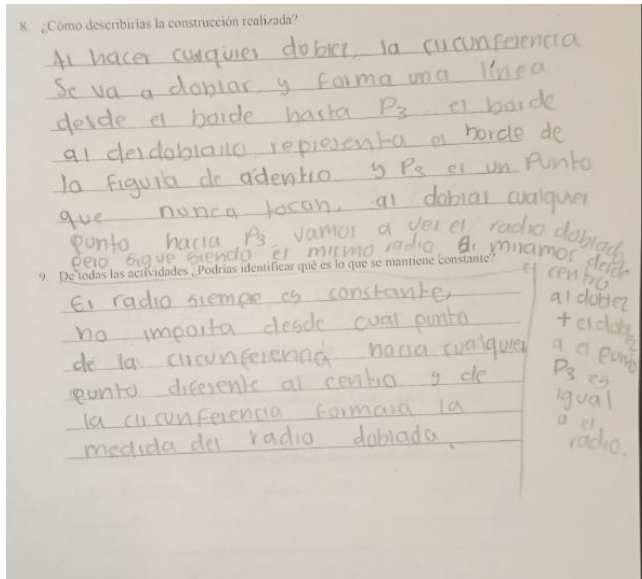 8. ¿Cómo describirías la construcción realizada?
Al hacer cualquier doblez, la circunferencia
Se va a doblar y forma una línea
desde el borde hasta P3. el borde
al desdoblarlo representa el borde de
la figura de adentro y P3 es un Punto
que nunca tocan, al doblar cualquier
punto hacia P3 vamos a ver el radio doblado
pero sigue siendo el mismo radio. Si miramos desde
el centro
al doblez
+ el doblez
a el punto
P3 es
igual
a el
radio.
9. De todas las actividades ¿Podrías identificar qué es lo que se mantiene constante?
El radio siempre es constante,
no importa desde cual punto
de la circunferencia hacia cualquier
punto diferente al centro y de
la circunferencia formara la
medida del radio doblado.